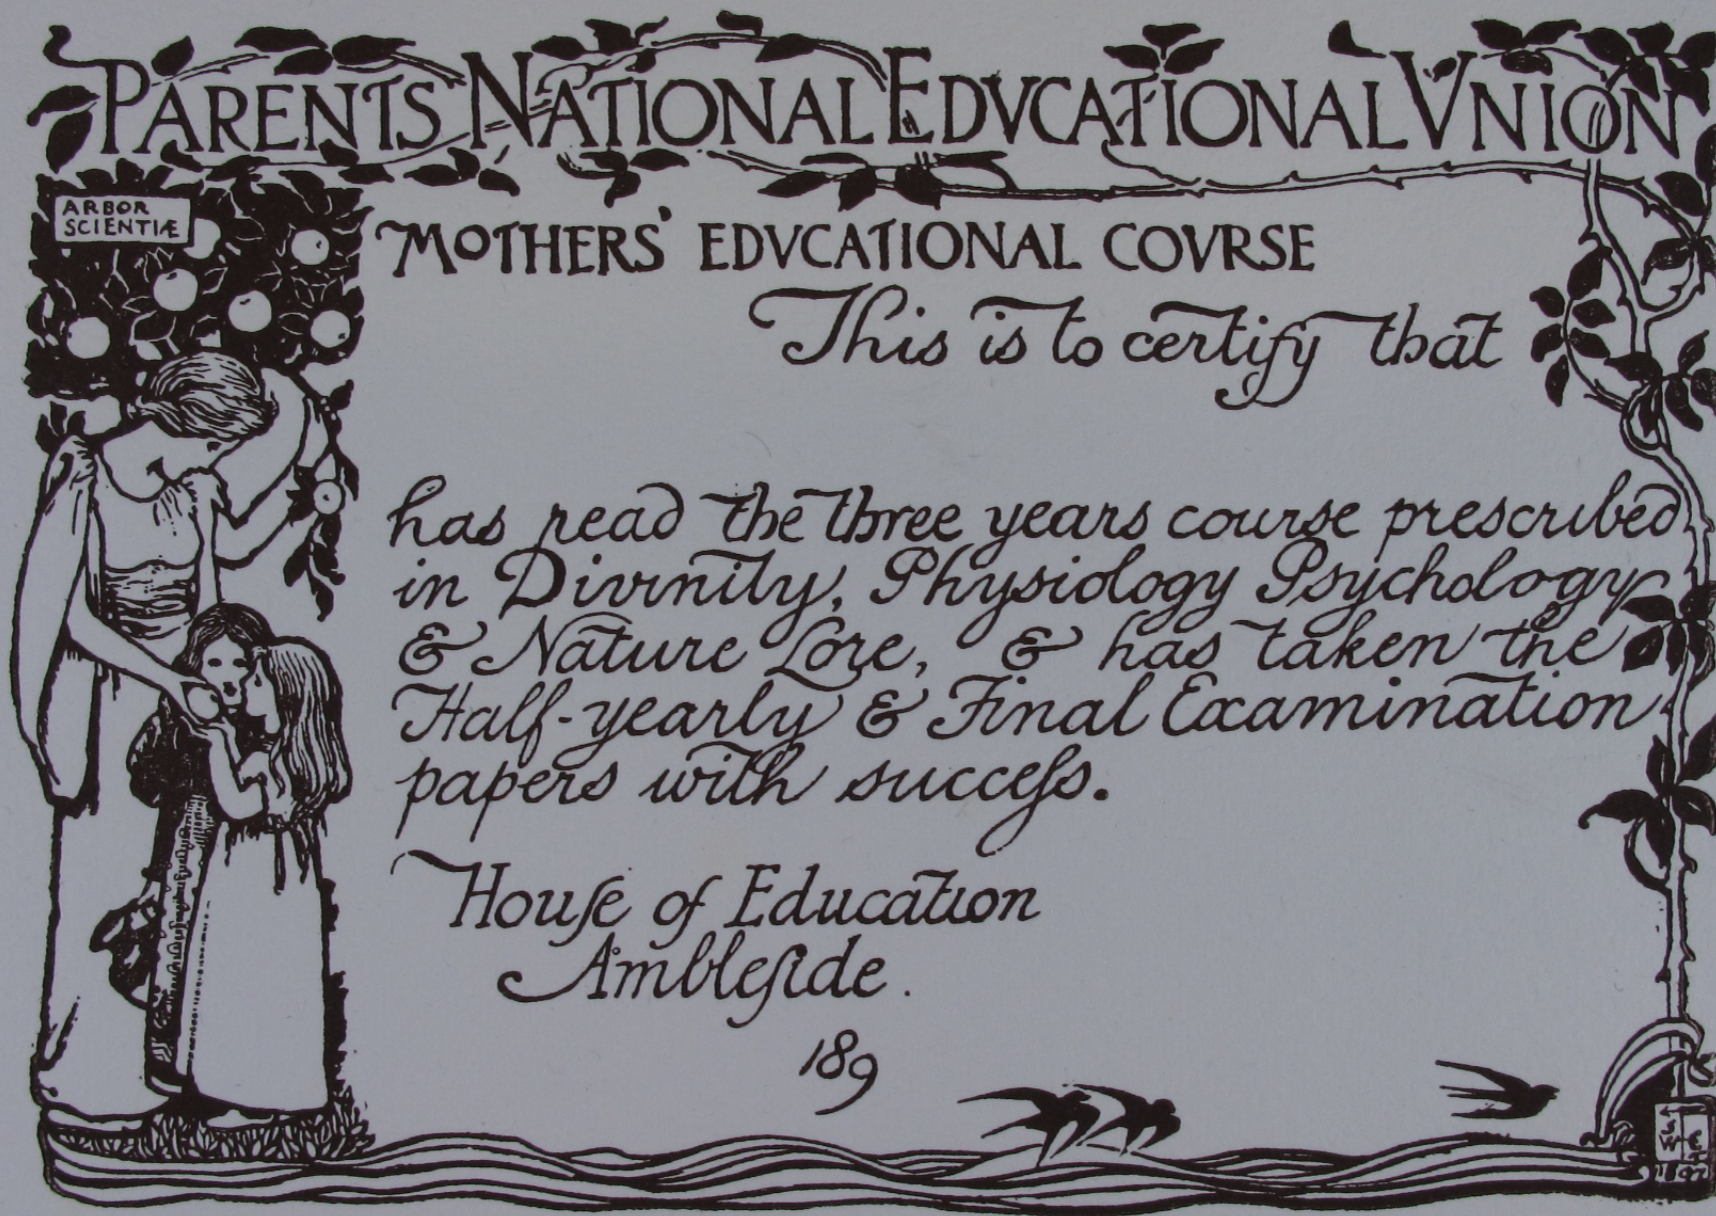 PARENTS NATIONAL EDVCATIONAL VNION
ARBOR
SCIENTIÆ
MOTHERS' EDVCATIONAL COVRSE
This is to certify that
has read the three years course prescribed
in Divinity, Physiology Psychology
& Nature Lore, & has taken the
Half-yearly & Final Examination
papers with succeſs.
Houſe of Education
Ambleſide.
189